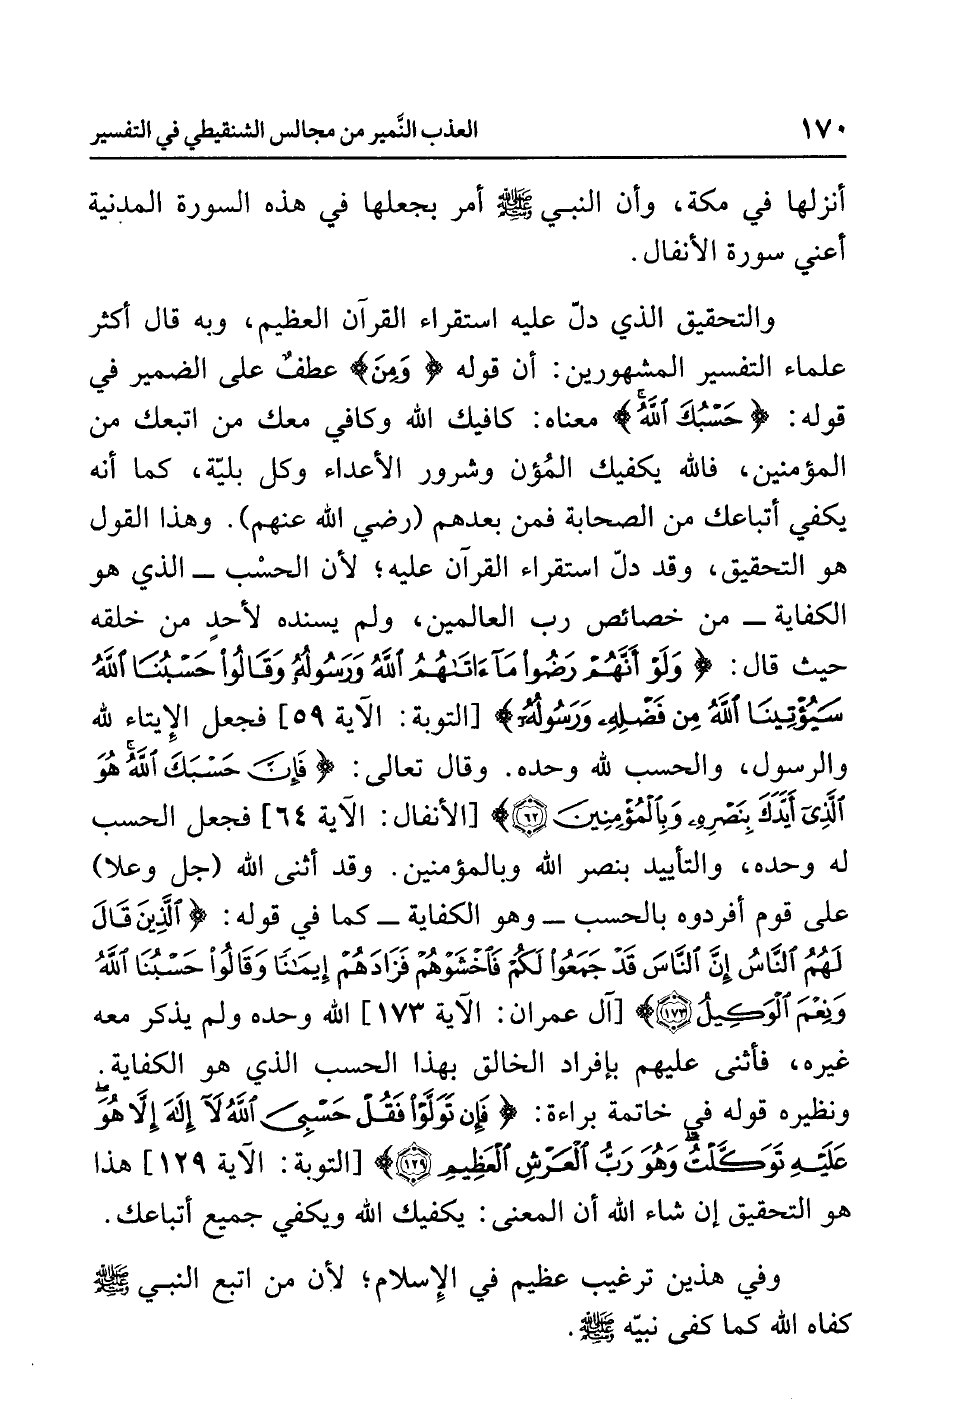 ١٧٠ العذب النَّمير من مجالس الشنقيطي في التفسير
أنزلها في مكة، وأن النبي ﷺ أمر بجعلها في هذه السورة المدنية
أعني سورة الأنفال.
والتحقيق الذي دلّ عليه استقراء القرآن العظيم، وبه قال أكثر
علماء التفسير المشهورين: أن قوله ﴿ وَمَنِ﴾ عطفٌ على الضمير في
قوله: ﴿ حَسْبُكَ ٱللَّهُ ۚ﴾ معناه: كافيك الله وكافي معك من اتبعك من
المؤمنين، فالله يكفيك المُؤن وشرور الأعداء وكل بليّة، كما أنه
يكفي أتباعك من الصحابة فمن بعدهم (رضي الله عنهم). وهذا القول
هو التحقيق، وقد دلّ استقراء القرآن عليه؛ لأن الحسْب ــ الذي هو
الكفاية ــ من خصائص رب العالمين، ولم يسنده لأحدٍ من خلقه
حيث قال: ﴿ وَلَوْ أَنَّهُمْ رَضُوا۟ مَآ ءَاتَىٰهُمُ ٱللَّهُ وَرَسُولُهُۥ وَقَالُوا۟ حَسْبُنَا ٱللَّهُ
سَيُؤْتِينَا ٱللَّهُ مِن فَضْلِهِۦ وَرَسُولُهُۥٓ﴾ [التوبة: الآية ٥٩] فجعل الإيتاء لله
والرسول، والحسب لله وحده. وقال تعالى: ﴿ فَإِنَّ حَسْبَكَ ٱللَّهُ ۚ هُوَ
ٱلَّذِىٓ أَيَّدَكَ بِنَصْرِهِۦ وَبِٱلْمُؤْمِنِينَ ٦٢﴾ [الأنفال: الآية ٦٤] فجعل الحسب
له وحده، والتأييد بنصر الله وبالمؤمنين. وقد أثنى الله (جل وعلا)
على قوم أفردوه بالحسب ــ وهو الكفاية ــ كما في قوله: ﴿ ٱلَّذِينَ قَالَ
لَهُمُ ٱلنَّاسُ إِنَّ ٱلنَّاسَ قَدْ جَمَعُوا۟ لَكُمْ فَٱخْشَوْهُمْ فَزَادَهُمْ إِيمَٰنًا وَقَالُوا۟ حَسْبُنَا ٱللَّهُ
وَنِعْمَ ٱلْوَكِيلُ ١٧٣﴾ [آل عمران: الآية ١٧٣] الله وحده ولم يذكر معه
غيره، فأثنى عليهم بإفراد الخالق بهذا الحسب الذي هو الكفاية.
ونظيره قوله في خاتمة براءة: ﴿ فَإِن تَوَلَّوْا۟ فَقُلْ حَسْبِىَ ٱللَّهُ لَآ إِلَٰهَ إِلَّا هُوَ ۖ
عَلَيْهِ تَوَكَّلْتُ ۖ وَهُوَ رَبُّ ٱلْعَرْشِ ٱلْعَظِيمِ ١٢٩﴾ [التوبة: الآية ١٢٩] هذا
هو التحقيق إن شاء الله أن المعنى: يكفيك الله ويكفي جميع أتباعك.
وفي هذين ترغيب عظيم في الإسلام؛ لأن من اتبع النبي ﷺ
كفاه الله كما كفى نبيّه ﷺ.